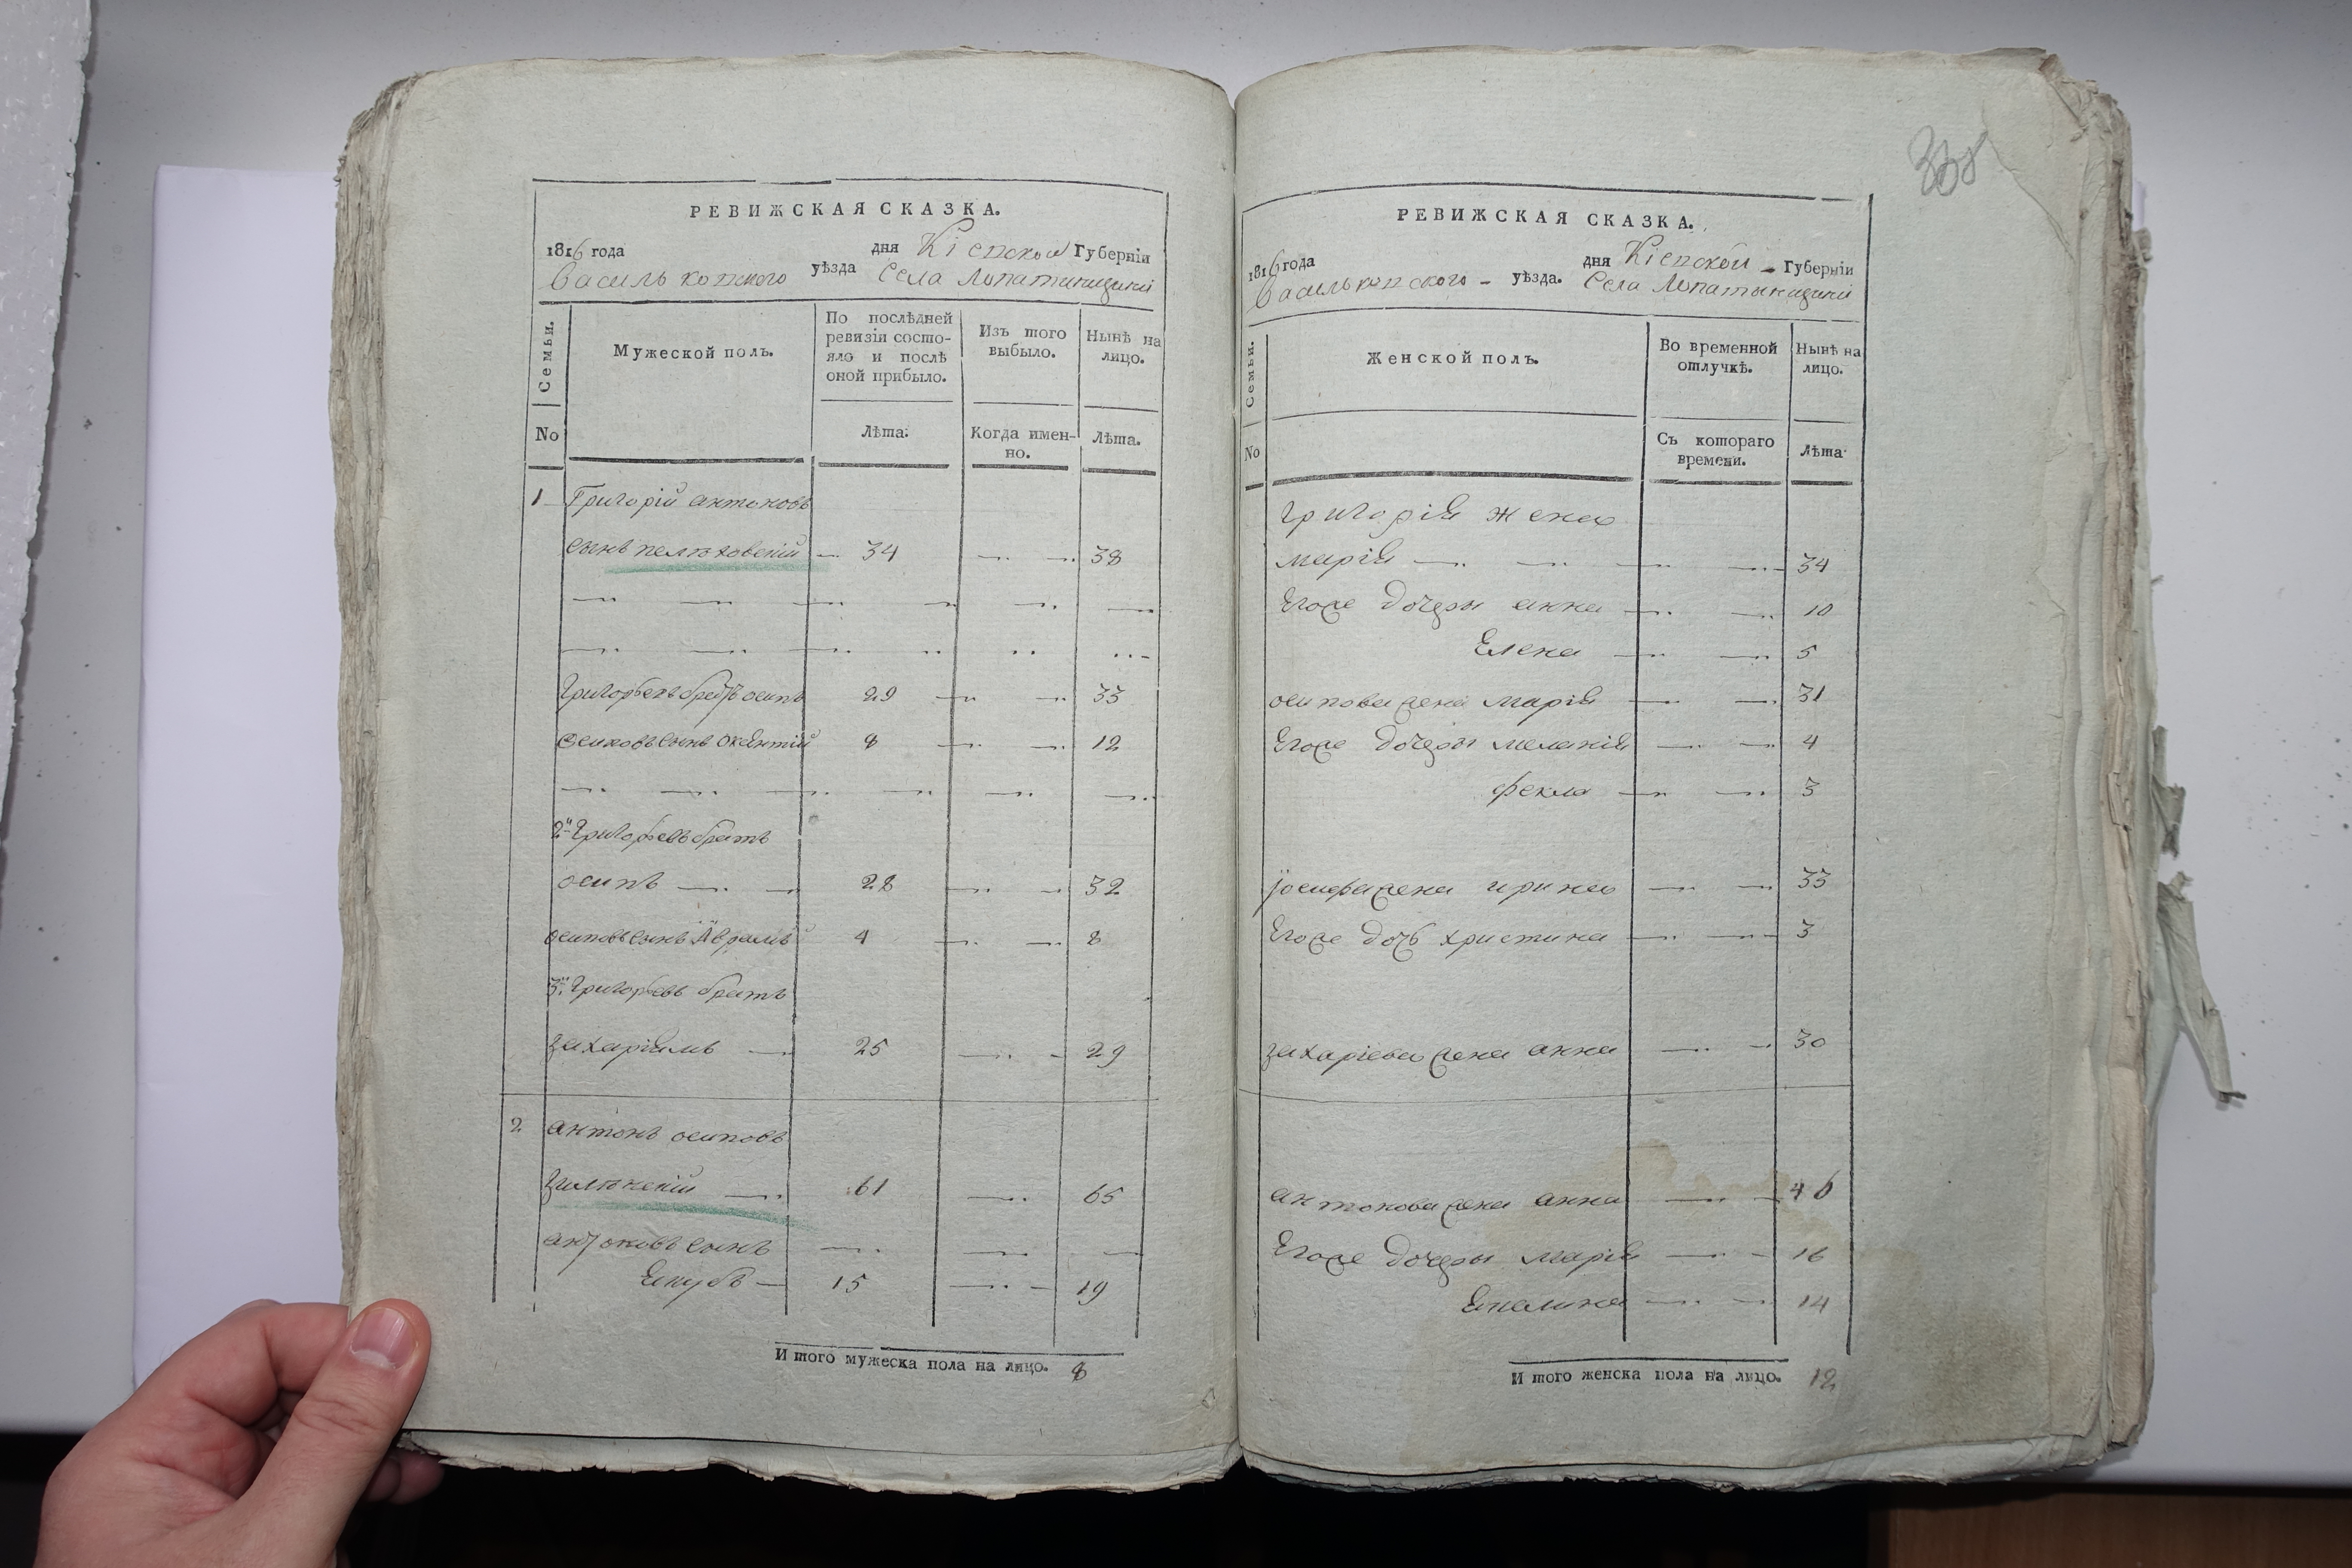 РЕВИЖСКАЯ СКАЗКА.
1816 года дня Кіевской Губерніи
Васильковского уѣзда Села Лопатинщини
Семьи.
Мужеской полъ.
По послѣдней ревизіи состо-
яло и послѣ
оной прибыло.
Изъ того
выбыло.
Нынѣ на
лицо.
No
Лѣта.
Когда имен-
но.
Лѣта.
1 Григорій антоновъ
сынъ 34 38
Григорьевъ братъ осипъ 29 33
Осиповъ сынъ 8 12
2й Григорьевъ братъ
осипъ 28 32
осиповъ сынъ Аврамъ 4 8
3й Григорьевъ братъ
захаріямъ 25 29
2 антонъ осиповъ
61 65
антоновъ сынъ
Якубъ 15 19
И того мужеска пола на лицо. 8
338
РЕВИЖСКАЯ СКАЗКА.
1816 года дня Кіевской Губерніи
Васильковского уѣзда. Села Лопатинщини
Семьи.
Женской полъ.
Во временной
отлучкѣ.
Нынѣ на
лицо.
No
Съ котораго
времени.
Лѣта
григорія жена
марія 34
Егоже дочеры анна 10
Елена 5
осипова жена марія 31
Егоже дочеры меланія 4
фекла 3
іосифа жена ирина 33
Егоже дочь христина 3
захаріева жена анна 30
антонова жена анна 46
Егоже дочеры марія 16
14
И того женска пола на лицо. 12